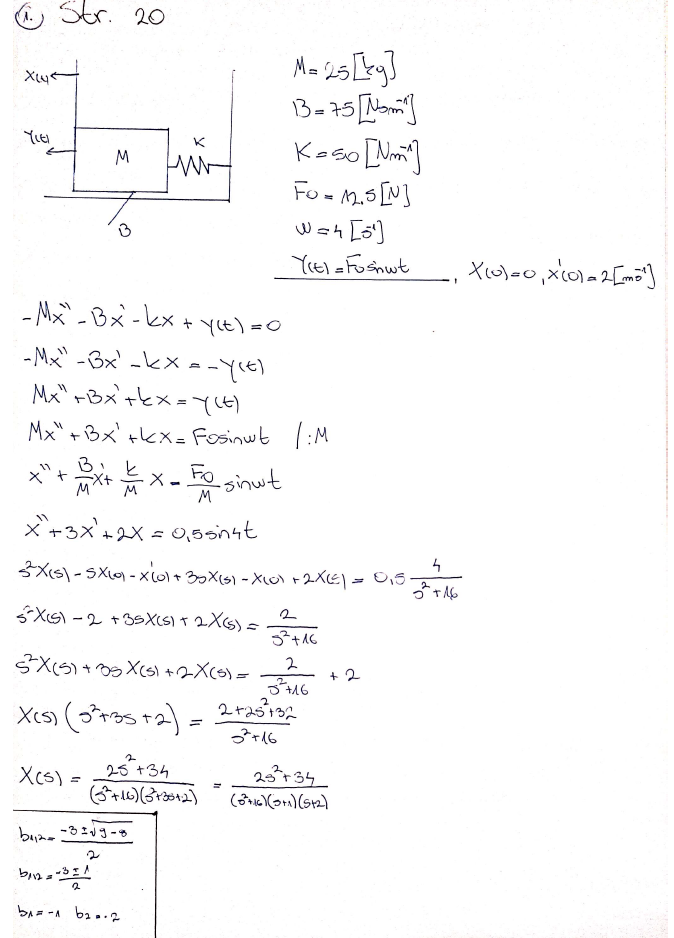 1. Str. 20
M = 25 [kg]
X(t)
B = 75 [Nsm⁻¹]
Y(t)
K
M
K = 50 [Nm⁻¹]
F0 = 12,5 [N]
B
W = 4 [s⁻¹]
Y(t) = F0 sinwt , X(0)=0, x'(0)=2 [ms⁻¹]
-Mx'' - Bx' - kx + Y(t) = 0
-Mx'' - Bx' - kx = -Y(t)
Mx'' + Bx' + kx = Y(t)
Mx'' + Bx' + kx = F0sinwt /:M
x'' + B/M x' + k/M x = F0/M sinwt
x'' + 3x' + 2x = 0,5 sin4t
s²X(s) - sX(0) - x'(0) + 3sX(s) - X(0) + 2X(s) = 0,5 4/(s²+16)
s²X(s) - 2 + 3sX(s) + 2X(s) = 2/(s²+16)
s²X(s) + 3sX(s) + 2X(s) = 2/(s²+16) + 2
X(s) (s²+3s+2) = (2+2s²+32)/(s²+16)
X(s) = (2s²+34)/((s²+16)(s²+3s+2)) = (2s²+34)/((s²+16)(s+1)(s+2))
b1,2 = (-3±√9-8)/2
b1,2 = (-3±1)/2
b1 = -1 b2 = -2